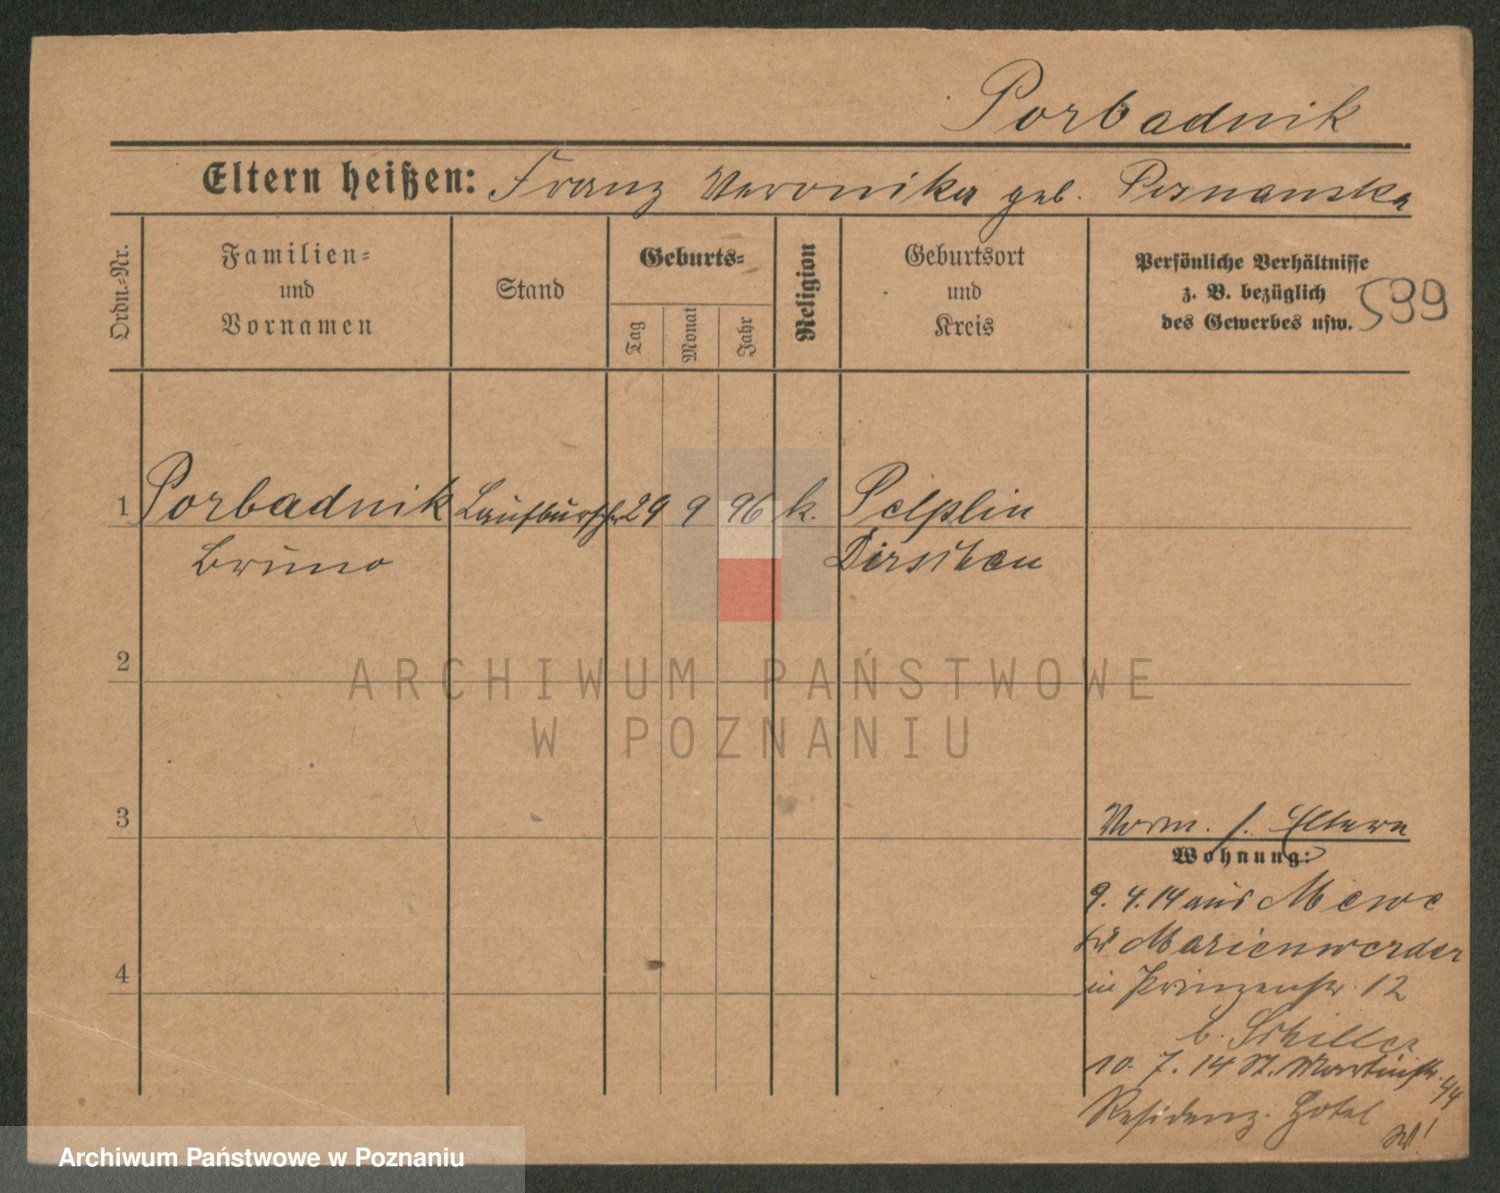 Porbadnik
Eltern heißen: Franz Veronika geb. Poznanska
Ordn.-Nr.
Familien-
und
Vornamen
Stand
Geburts-
Tag
Monat
Jahr
Religion
Geburtsort
und
Kreis
Persönliche Verhältnisse
z. B. bezüglich
des Gewerbes usw.
599
1 Porbadnik Laufbursche 29 9 96 k. Pelplin
Bruno Dirschau
2
3
4
Vorm. s. Eltern
Wohnung:
9. 4. 14 aus Mewe
Kr Marienwerder
in Prinzenstr. 12
b. Schiller
10. 7. 14 St. Martinstr. 44
Residenz. Hotel
ARCHIWUM PAŃSTWOWE
W POZNANIU
Archiwum Państwowe w Poznaniu